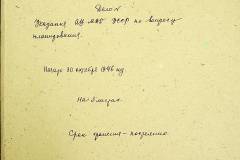 Дело №
Указания АН МВБ СССР по вопросу
планирования.
Начато 30 октября 1946 год.
На листах.
Срок хранения - постоянно